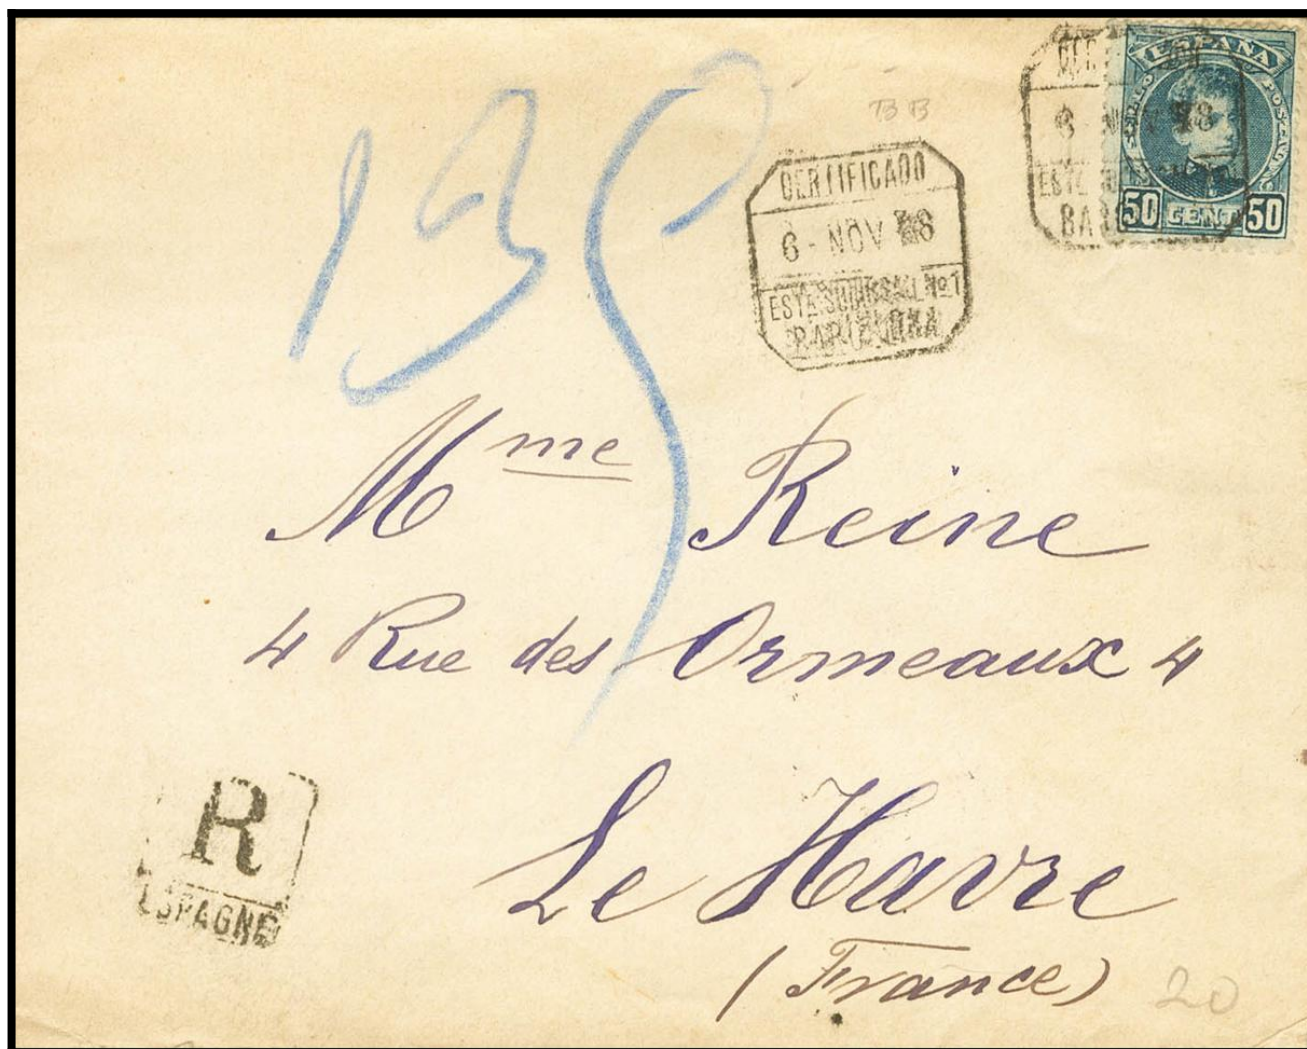 135
B B
CERTIFICADO
6 - NOV 8
ESTA. SUCURSAL No 1
BARCELONA
ESPAÑA
50 CENT. 50
Mme Reine
4 Rue des Ormeaux 4
Le Havre
(France)
20
R
ESPAGNE